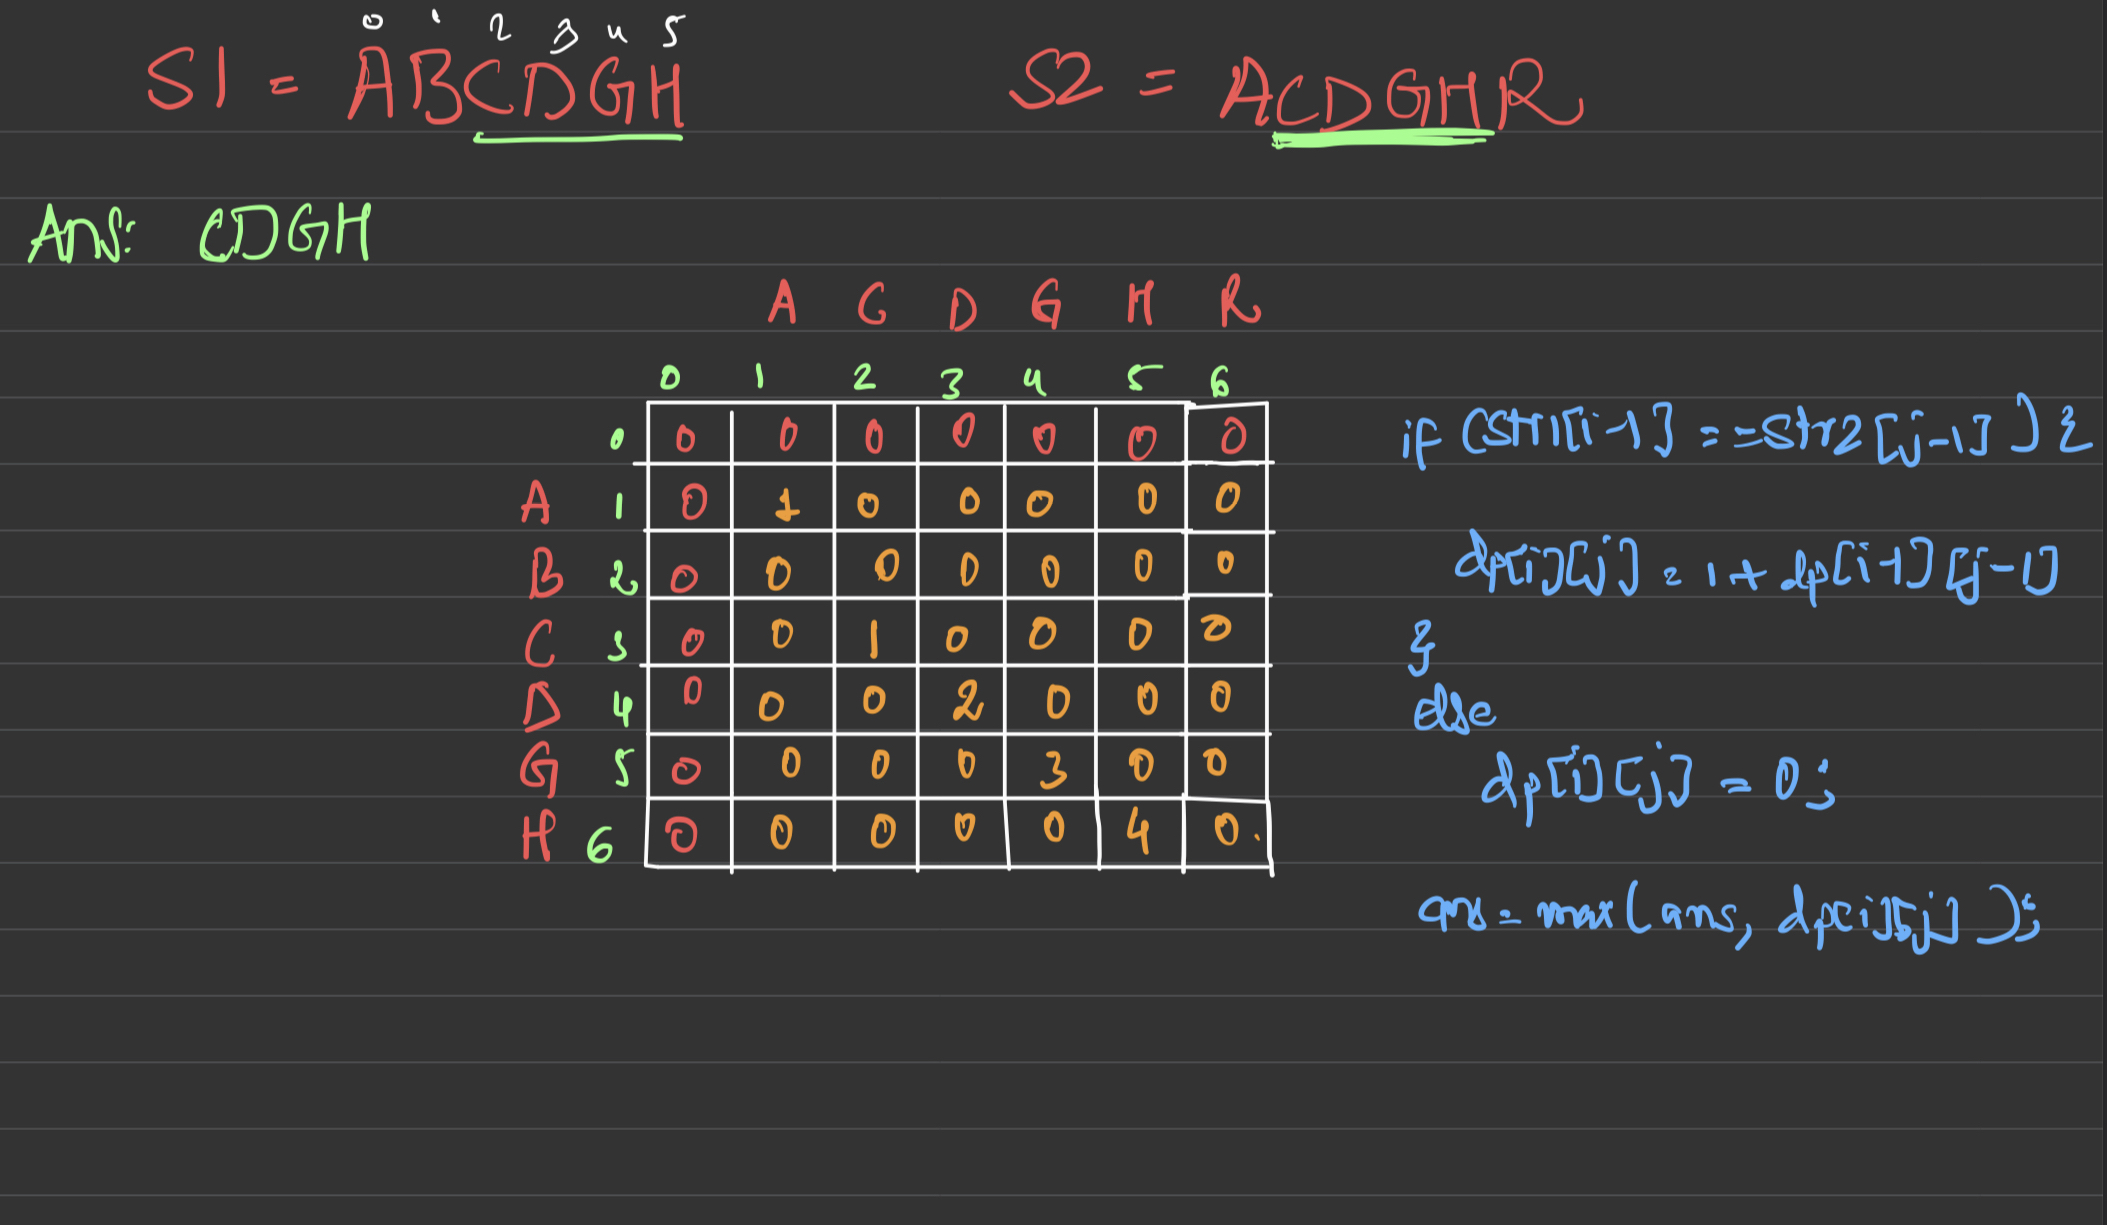 0 1 2 3 4 5
S1 = ABCDGH S2 = ACDGHR
Ans: CDGH
A C D G H R
0 1 2 3 4 5 6
0 0 0 0 0 0 0 0
A 1 0 1 0 0 0 0 0
B 2 0 0 0 0 0 0 0
C 3 0 0 1 0 0 0 0
D 4 0 0 0 2 0 0 0
G 5 0 0 0 0 3 0 0
H 6 0 0 0 0 0 4 0.
if (str1[i-1] == str2[j-1]) {
dp[i][j] = 1 + dp[i-1][j-1]
}
else
dp[i][j] = 0;
ans = max(ans, dp[i][j]);